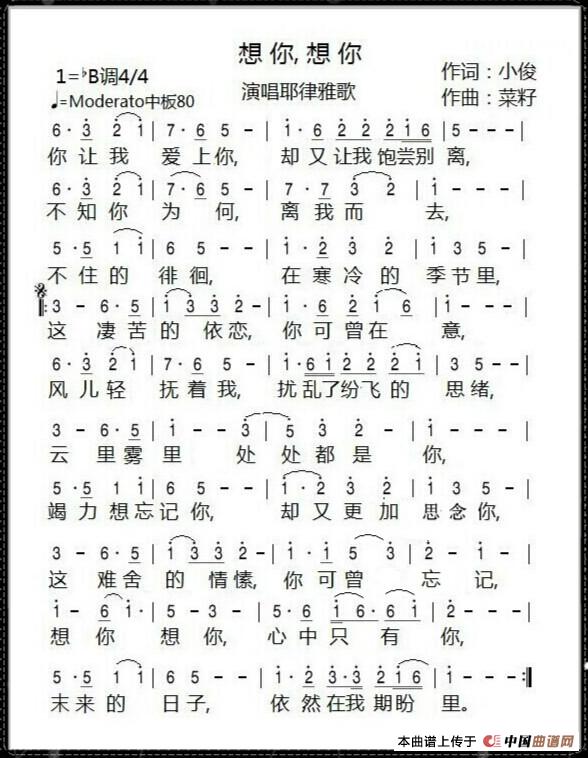 想你,想你
1=♭B调4/4
作词：小俊
♩=Moderato中板80
演唱耶律雅歌
作曲：菜籽
6· 3 2 1 | 7· 6 5 - | 1· 6 2 2 2 1 6 | 5 - - - |
你让我 爱上你, 却又让我饱尝别离,
6· 3 2 1 | 7· 6 5 - - | 7· 7 3 2 | 1 - - |
不知你 为何, 离我而 去,
5· 5 1 1 | 6 5 - - | 1· 2 3 2 | 1 3 5 - |
不住的 徘徊, 在寒冷的 季节里,
3 - 6· 5 | 1 3 3 2 - | 6· 2 1 6 | 1 - - - |
这 凄苦的依恋, 你可曾在 意,
6· 3 2 1 | 7· 6 5 - | 1· 6 1 2 2 2 1 | 3 5 - - |
风儿轻 抚着我, 扰乱了纷飞的 思绪,
3 - 6· 5 | 1 - - 3 | 5 3 2 | 2 - - - |
云 里雾里 处 处都是 你,
5· 5 1 1 | 6 5 - - | 1· 2 3 2 | 1 3 5 - |
竭力想忘记你, 却又更加 思念你,
3 - 6· 5 | 1 3 3 2 - | 5· 5 1 3 | 2 - 1 - |
这 难舍的情愫, 你可曾 忘记,
1 - 6· 3 | 5 - 3 - | 5· 6 1 6· 6 1 | 2 - - - |
想 你 想 你, 心中只 有 你,
5· 5 1 1 | 6 5 - - | 3· 3 2 2 1 6 | 1 - - - :‖
未来的 日子, 依然在我期盼 里。
本曲谱上传于 中国曲谱网